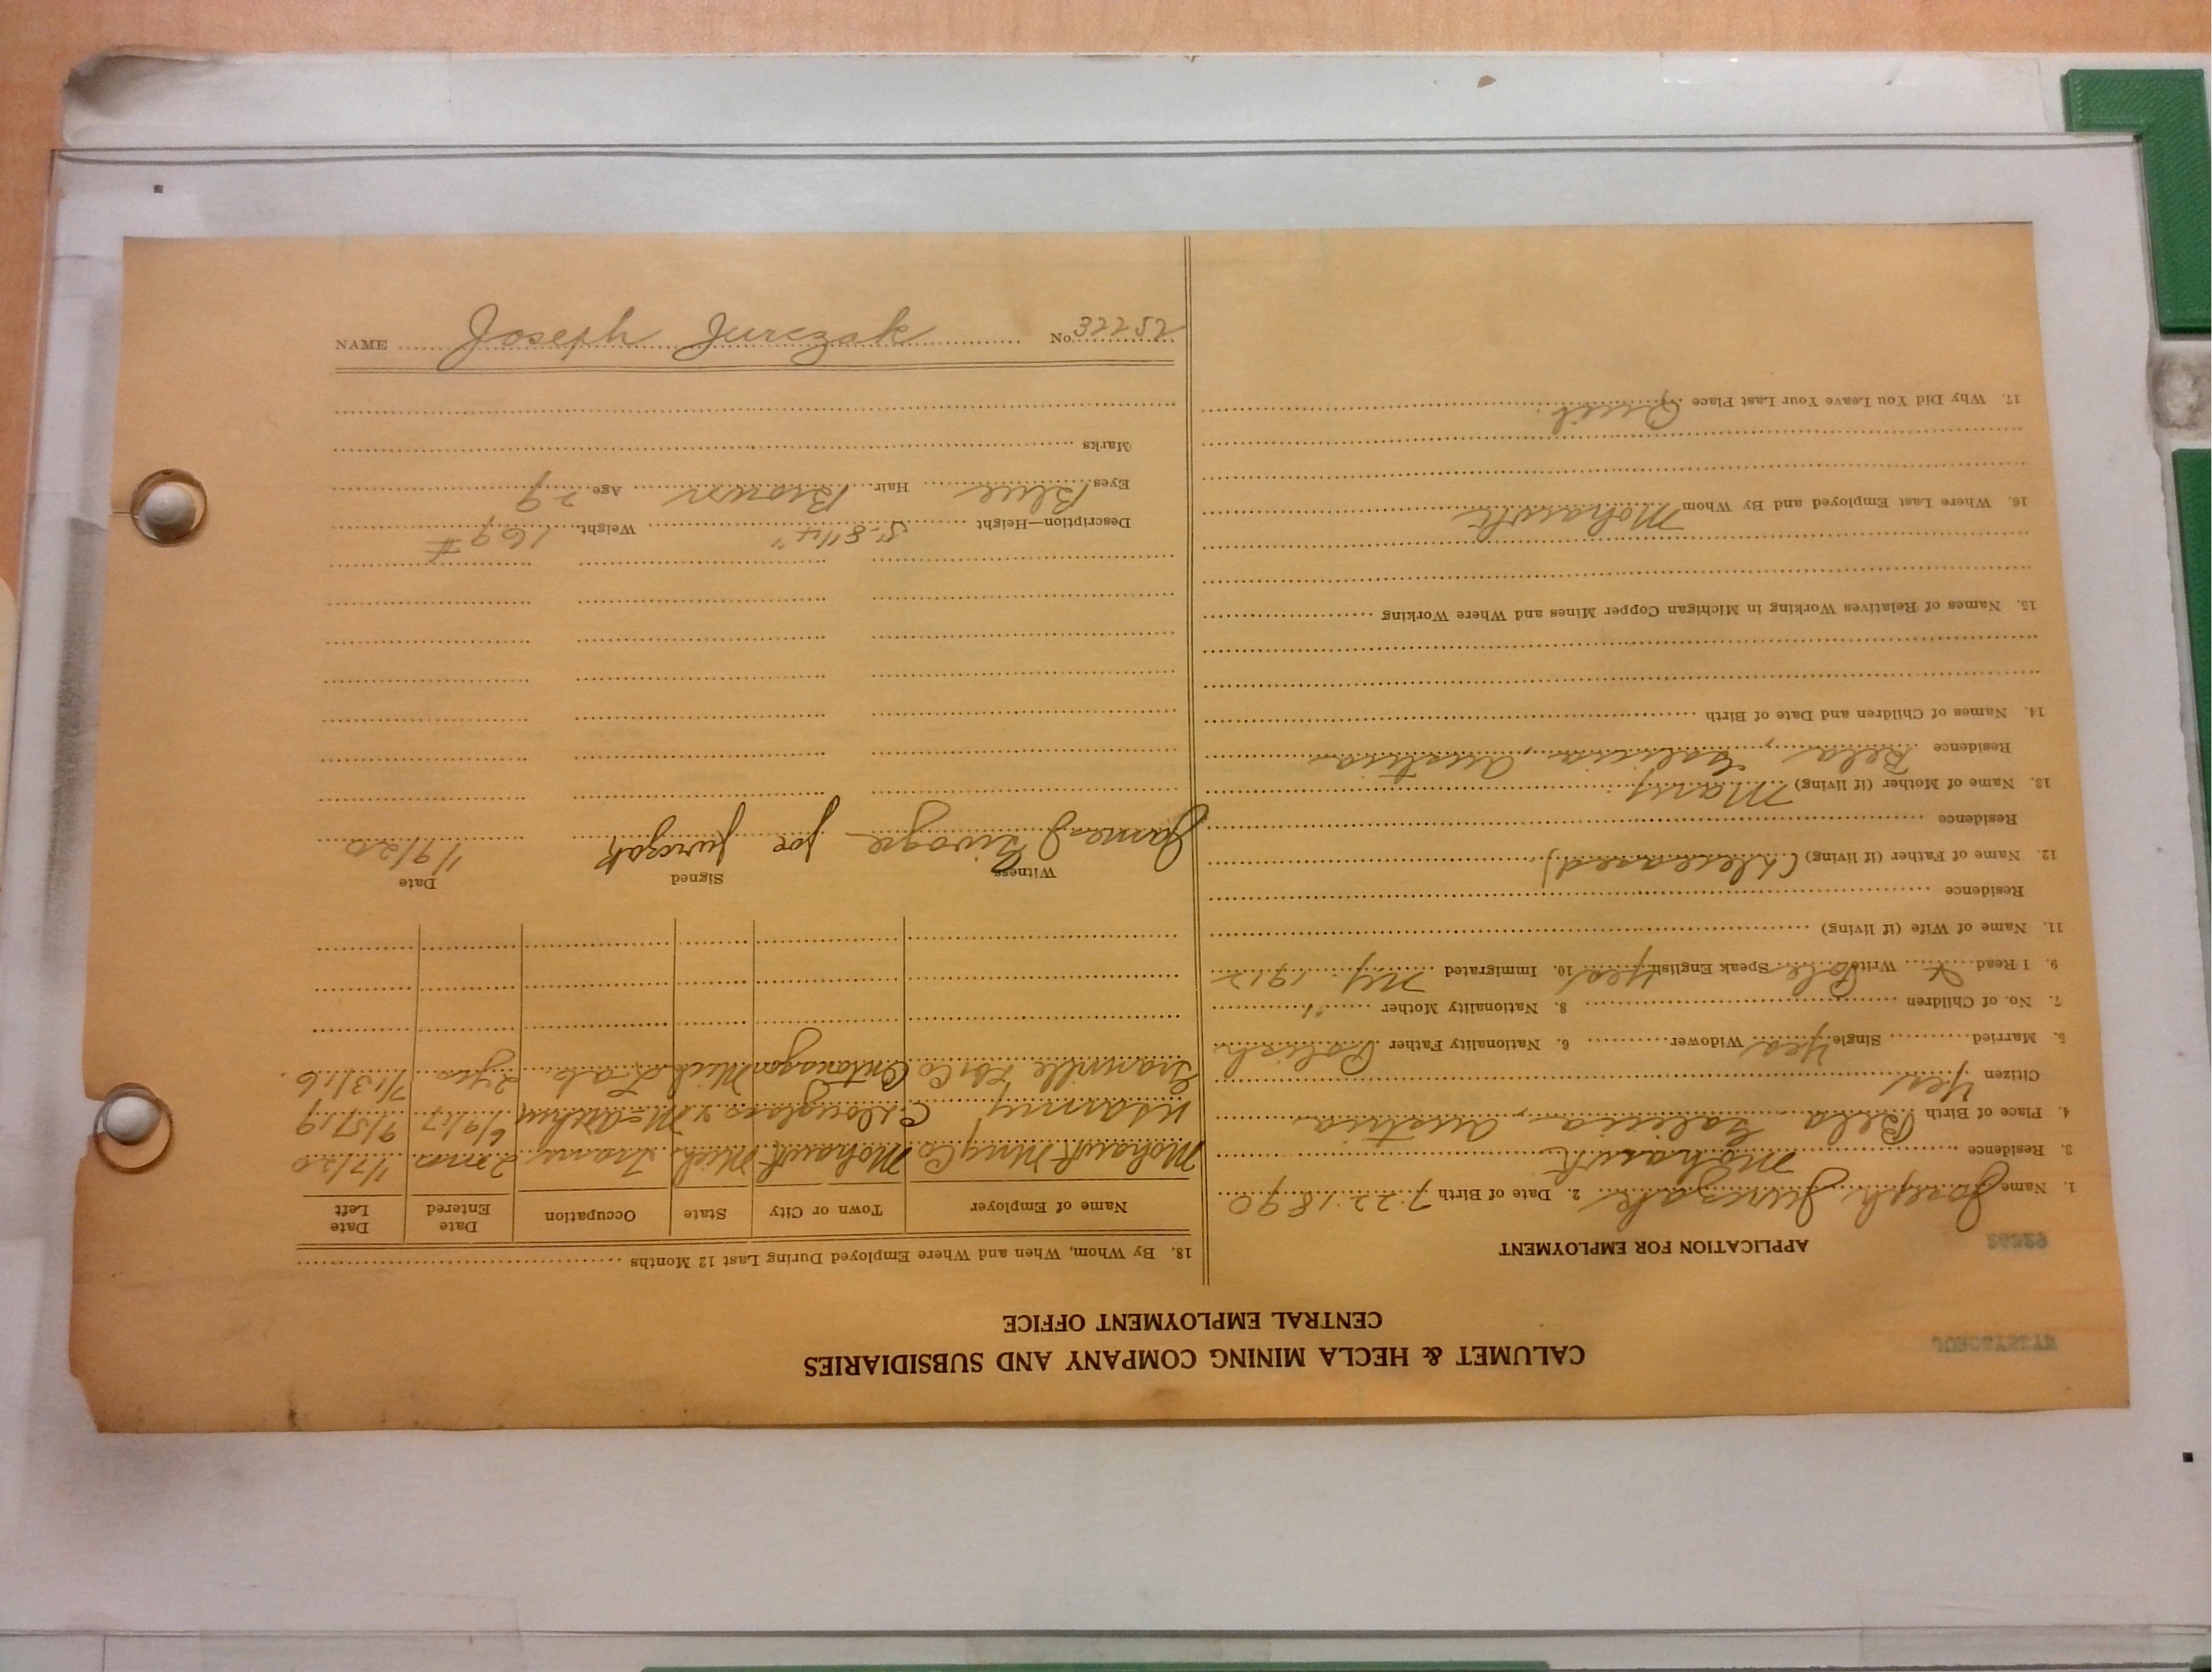 CALUMET & HECLA MINING COMPANY AND SUBSIDIARIES
CENTRAL EMPLOYMENT OFFICE
APPLICATION FOR EMPLOYMENT
1. Name Joseph Jurczak 2. Date of Birth 7-22-1890
3. Residence Mohawk
4. Place of Birth Bela Galicia, Austria
Citizen Yes
5. Married Single Yes Widower 6. Nationality Father Polish
7. No. of Children 8. Nationality Mother "
9. I Read X Write Pole Speak English Yes 10. Immigrated NY 1912
11. Name of Wife (if living)
Residence
12. Name of Father (if living) (deceased)
Residence
13. Name of Mother (if living) Mary
Residence Bela, Galicia, Austria
14. Names of Children and Date of Birth
15. Names of Relatives Working in Michigan Copper Mines and Where Working
16. Where Last Employed and By Whom Mohawk
17. Why Did You Leave Your Last Place Quit.
18. By Whom, When and Where Employed During Last 12 Months
Name of Employer Town or City State Occupation Date Entered Date Left
Mohawk Mng Co Mohawk Mich. Tramg 2 mos 1/7/20
US army C. Douglass & McArthur 6/9/17 9/5/19
Granville Co Ontonagon Mich Lab. 2 yrs 7/31/16.
Witness Signed Date
James J joe jurczak 1/9/20
Description—Height 5-8 1/4" Weight 169#
Eyes Blue Hair Brown Age 29
Marks
NAME Joseph Jurczak No. 32252